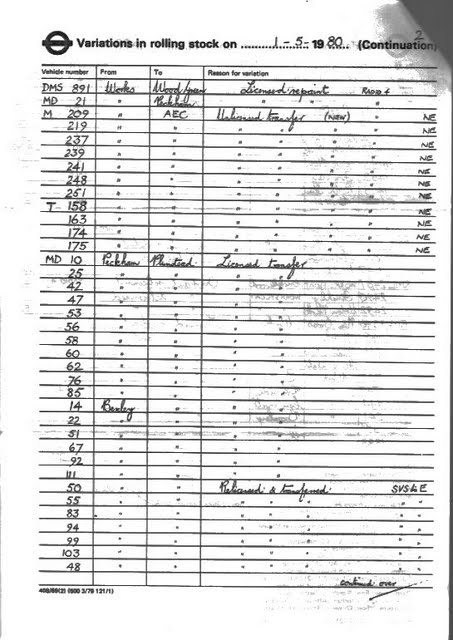 2
Variations in rolling stock on 1 - 5 - 1980 (Continuation)
Vehicle number From To Reason for variation
DMS 891 Works Wood Green Licensed repaint RADIO 4
MD 21 " Peckham " " "
M 209 " AEC Unlicensed transfer (NEW) " NE
219 " " " " " " NE
237 " " " " " " NE
239 " " " " " " NE
241 " " " " " " NE
248 " " " " " " NE
251 " " " " " " NE
T 158 " " " " " " NE
163 " " " " " " NE
174 " " " " " " NE
175 " " " " " " NE
MD 10 Peckham Plumstead Licensed transfer
25 " " " "
42 " " " "
47 " " " "
53 " " " "
56 " " " "
58 " " " "
60 " " " "
62 " " " "
76 " " " "
85 " " " "
14 Bexley " " "
22 " " " "
51 " " " "
67 " " " "
92 " " " "
111 " " " "
50 " " Relicensed & transferred SVS & E
55 " " " " " " "
83 " " " " " " "
94 " " " " " " "
99 " " " " " " "
103 " " " " " " "
48 " " " " " " "
continued over
408/69(2) (500 3/79 121/1)